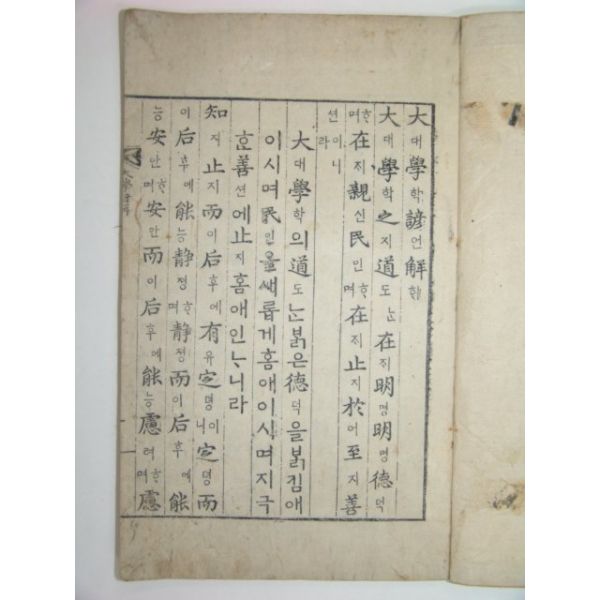 大대學학諺언解ᄒᆡ
大대學학之지道도ᄂᆞᆫ在ᄌᆡ明명明명德덕
ᄒᆞ며在ᄌᆡ親신民민ᄒᆞ며在ᄌᆡ止지於어至지善
션이니라
大대學학의道도ᄂᆞᆫᄇᆞᆰ은德덕을ᄇᆞᆰ킴애
이시며民민을새롭게홈애이시며지극
ᄒᆞᆫ善션에止지홈애인ᄂᆞ니라
知지止지而이后후에有유定뎡이니定뎡而
이后후에能능静졍ᄒᆞ며静졍而이后후에能
능安안ᄒᆞ며安안而이后후에能능慮려ᄒᆞ며慮
大學諺解